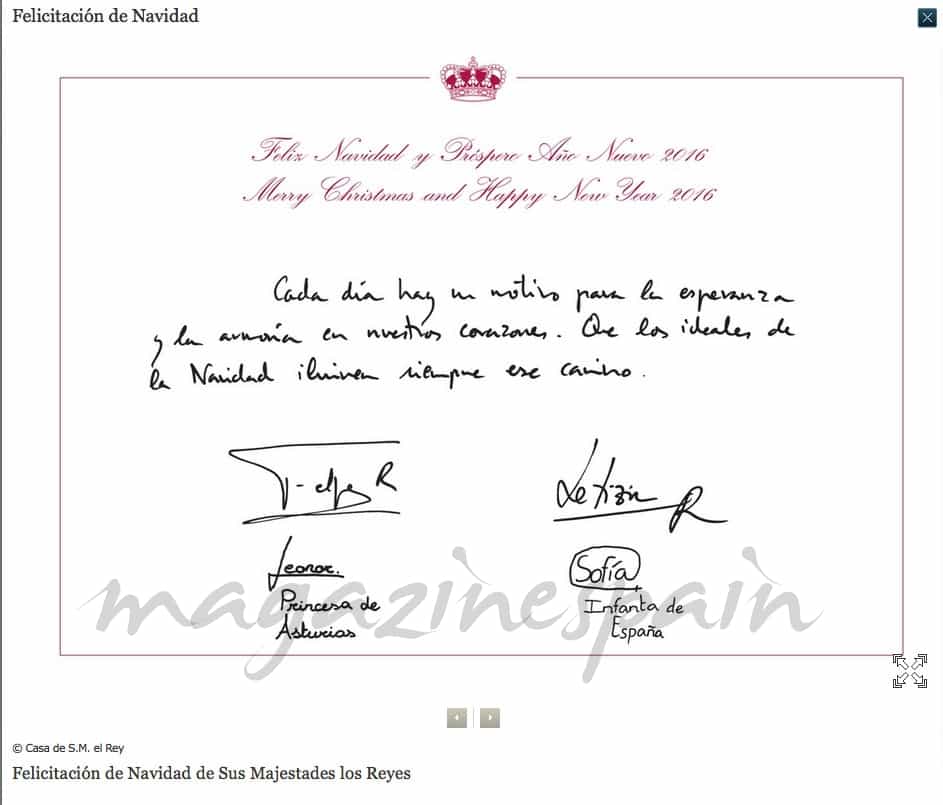 Felicitación de Navidad
Feliz Navidad y Próspero Año Nuevo 2016
Merry Christmas and Happy New Year 2016
Cada día hay un motivo para la esperanza
y la armonía en nuestros corazones. Que los ideales de
la Navidad iluminen siempre ese camino.
Felipe R
Letizia R
Leonor.
Princesa de
Asturias
Sofía
Infanta de
España
magazinespain
© Casa de S.M. el Rey
Felicitación de Navidad de Sus Majestades los Reyes